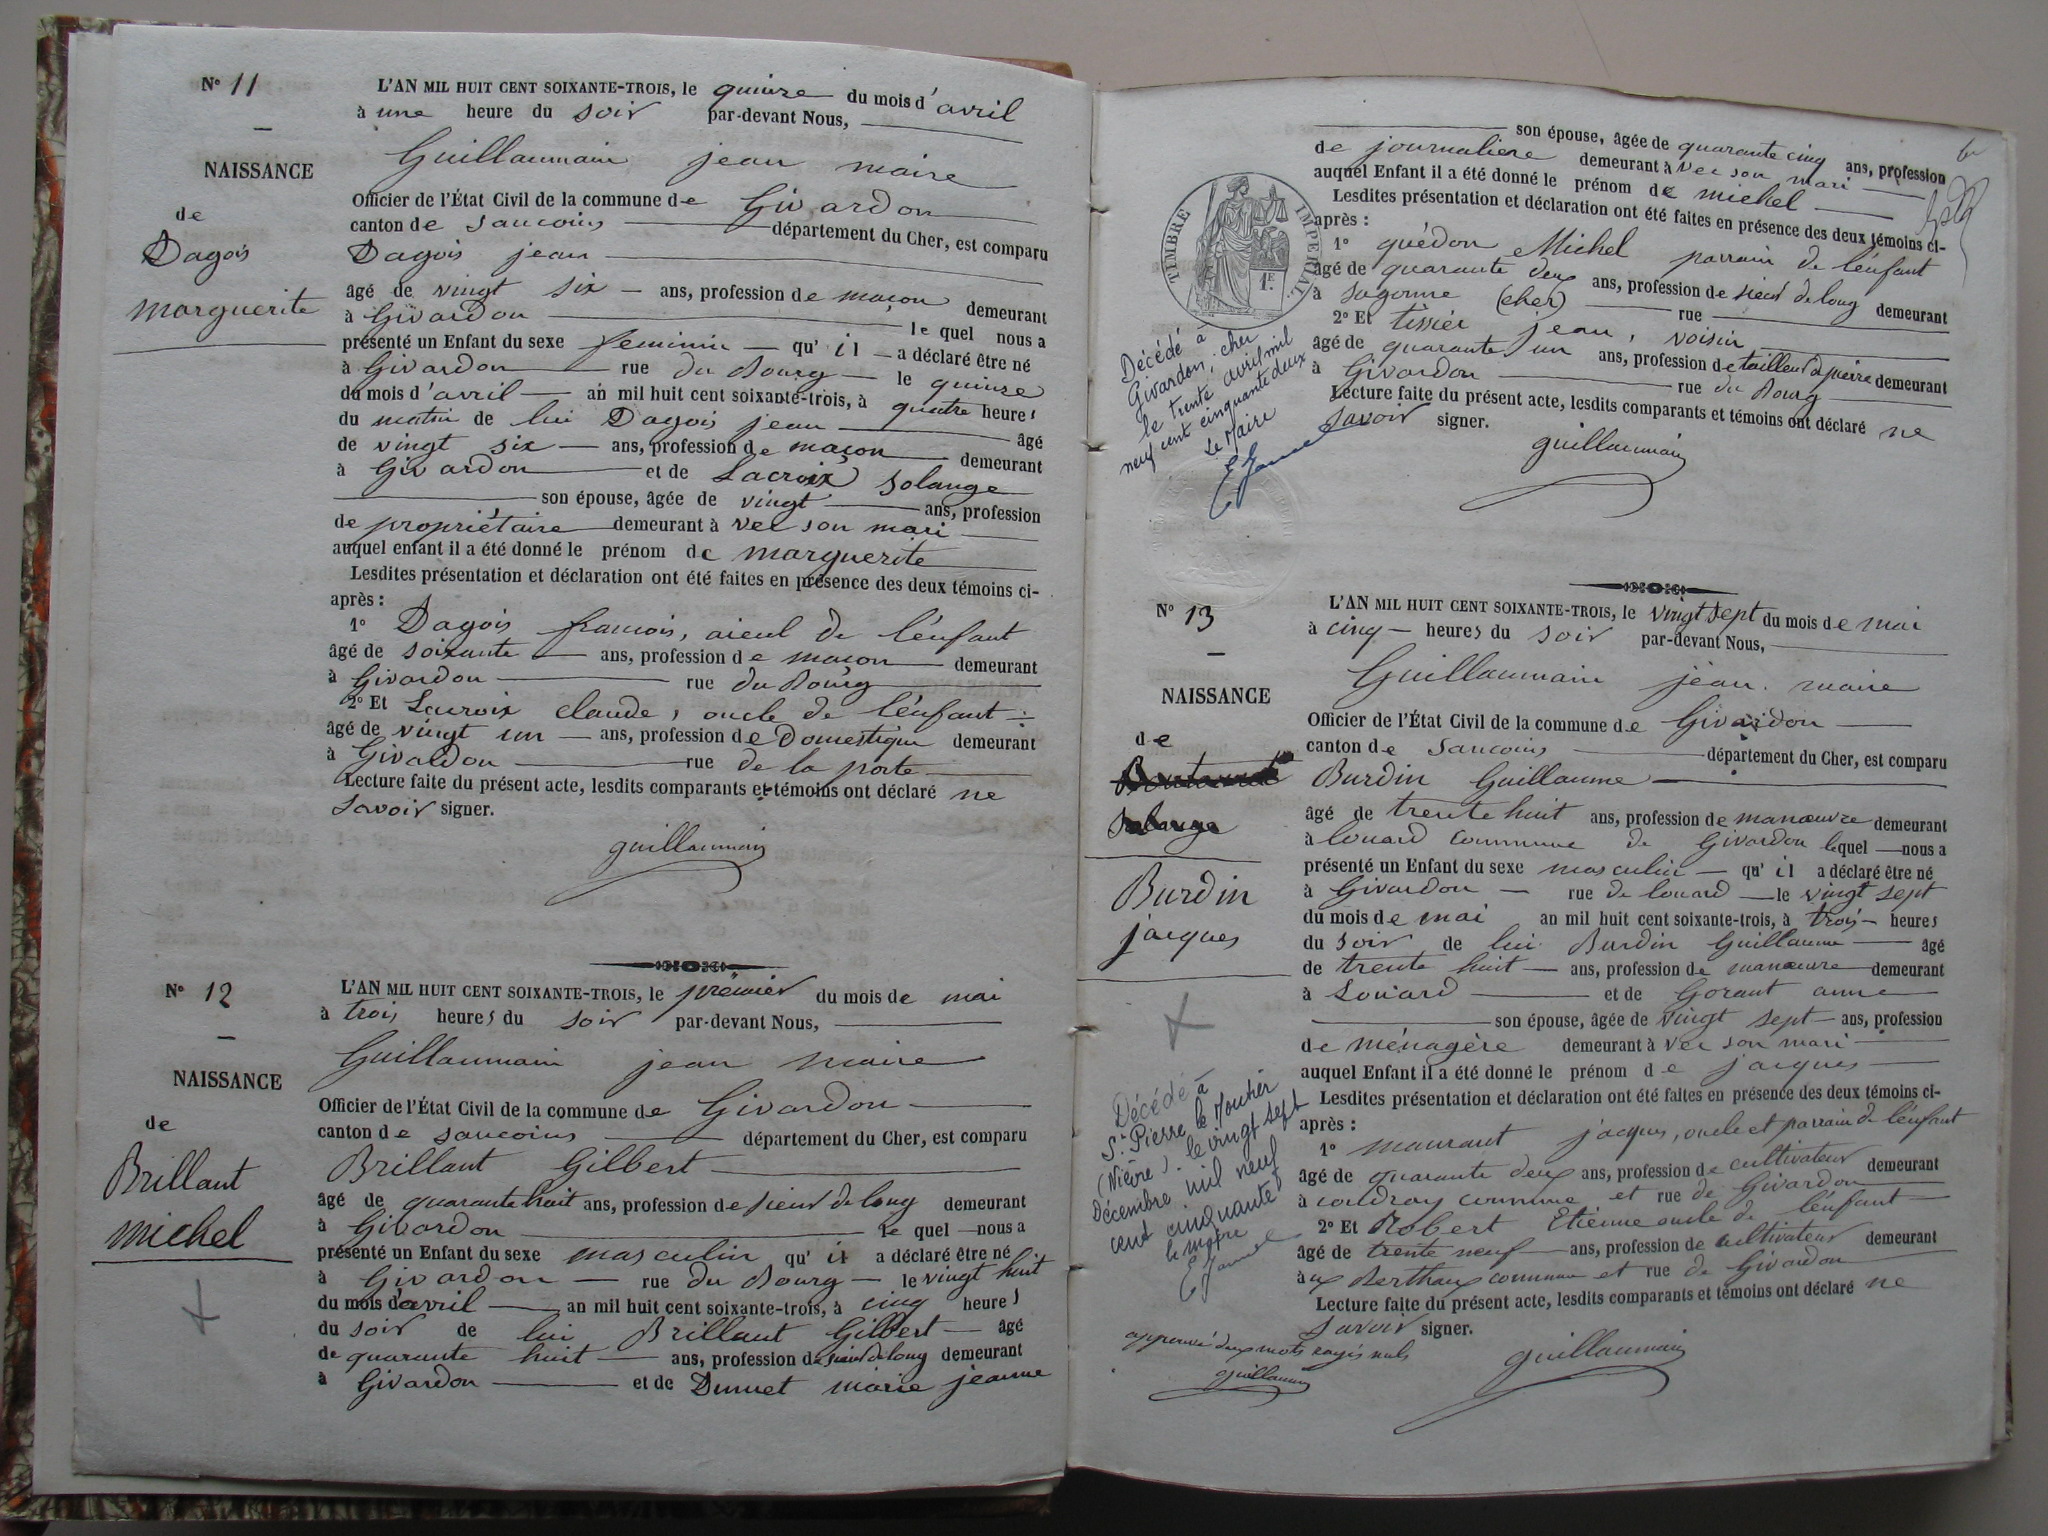 N° 11
L'AN MIL HUIT CENT SOIXANTE-TROIS, le quinze du mois d'avril
à une heure du soir par-devant Nous,
Guillaumain jean maire
NAISSANCE
Officier de l'État Civil de la commune de Givardon
canton de sancoins département du Cher, est comparu
de
Dagois
marguerite
Dagois jean
âgé de vingt six ans, profession de maçon demeurant
à Givardon lequel nous a
présenté un Enfant du sexe feminin qu'il a déclaré être né
à Givardon rue du Bourg le quinze
du mois d'avril an mil huit cent soixante-trois, à quatre heures
du matin de lui Dagois jean âgé
de vingt six ans, profession de maçon demeurant
à Givardon et de Lacroix solange
son épouse, âgée de vingt ans, profession
de propriétaire demeurant à vec son mari
auquel enfant il a été donné le prénom de marguerite
Lesdites présentation et déclaration ont été faites en présence des deux témoins ci-
après :
1° Dagois francois, aieul de l'énfant
âgé de soixante ans, profession de maçon demeurant
à Givardon rue du Bourg
2° Et Lacroix claude, oncle de l'énfant
âgé de vingt un ans, profession de Domestique demeurant
à Givardon rue de la porte
Lecture faite du présent acte, lesdits comparants et témoins ont déclaré ne
savoir signer.
guillaumain
N° 12
L'AN MIL HUIT CENT SOIXANTE-TROIS, le prémier du mois de mai
à trois heures du soir par-devant Nous,
Guillaumain jean maire
NAISSANCE
Officier de l'État Civil de la commune de Givardon
canton de sancoins département du Cher, est comparu
de
Brillant
michel
Brillant Gilbert
âgé de quarante huit ans, profession de sieur de long demeurant
à Givardon le quel nous a
présenté un Enfant du sexe masculin qu'il a déclaré être né
à Givardon rue du Bourg le vingt huit
du mois d'avril an mil huit cent soixante-trois, à cinq heures
du soir de lui Brillant Gilbert âgé
de quarante huit ans, profession de sieur de long demeurant
à Givardon et de Dunuet marie jeanne
son épouse, âgée de quarante cinq ans, profession
de journaliere demeurant à vec son mari
auquel Enfant il a été donné le prénom de michel
Lesdites présentation et déclaration ont été faites en présence des deux témoins ci-
après :
TIMBRE IMPERIAL
1E.
1° quédon Michel parrain de l'énfant
âgé de quarante deux ans, profession de sieur de long demeurant
à sagonne (cher) rue
2° Et tissier jean, voisin
âgé de quarante un ans, profession de tailleur de pierre demeurant
à Givardon rue du Bourg
Lecture faite du présent acte, lesdits comparants et témoins ont déclaré ne
savoir signer.
guillaumain
Décédé à
Givardon, cher
le trente avril mil
neuf cent cinquante deux
Le Maire
N° 13
L'AN MIL HUIT CENT SOIXANTE-TROIS, le vingt sept du mois de mai
à cinq heures du soir par-devant Nous,
Guillaumain jean maire
NAISSANCE
Officier de l'État Civil de la commune de Givardon
canton de sancoins département du Cher, est comparu
de
solange
Burdin
jacques
Burdin Guillaume
âgé de trente huit ans, profession de manœuvre demeurant
à louard commune de Givardon lequel nous a
présenté un Enfant du sexe masculin qu'il a déclaré être né
à Givardon rue de louard le vingt sept
du mois de mai an mil huit cent soixante-trois, à trois heures
du soir de lui Burdin Guillaume âgé
de trente huit ans, profession de manœuvre demeurant
à Louard et de Gorant anne
son épouse, âgée de vingt sept ans, profession
de ménagère demeurant à vec son mari
auquel Enfant il a été donné le prénom de jacques
Lesdites présentation et déclaration ont été faites en présence des deux témoins ci-
après :
1° maurant jacques, oncle et parrain de l'énfant
âgé de quarante deux ans, profession de cultivateur demeurant
à couldray commune et rue de Givardon
2° Et Robert Etienne oncle de l'énfant
âgé de trente neuf ans, profession de cultivateur demeurant
aux Berthaux commune et rue de Givardon
Lecture faite du présent acte, lesdits comparants et témoins ont déclaré ne
savoir signer.
guillaumain
Décédé à
St Pierre le Moutier
(Nièvre) le vingt sept
Décembre mil neuf
cent cinquante
le maire
approuvé deux mots rayés nuls
guillaumain